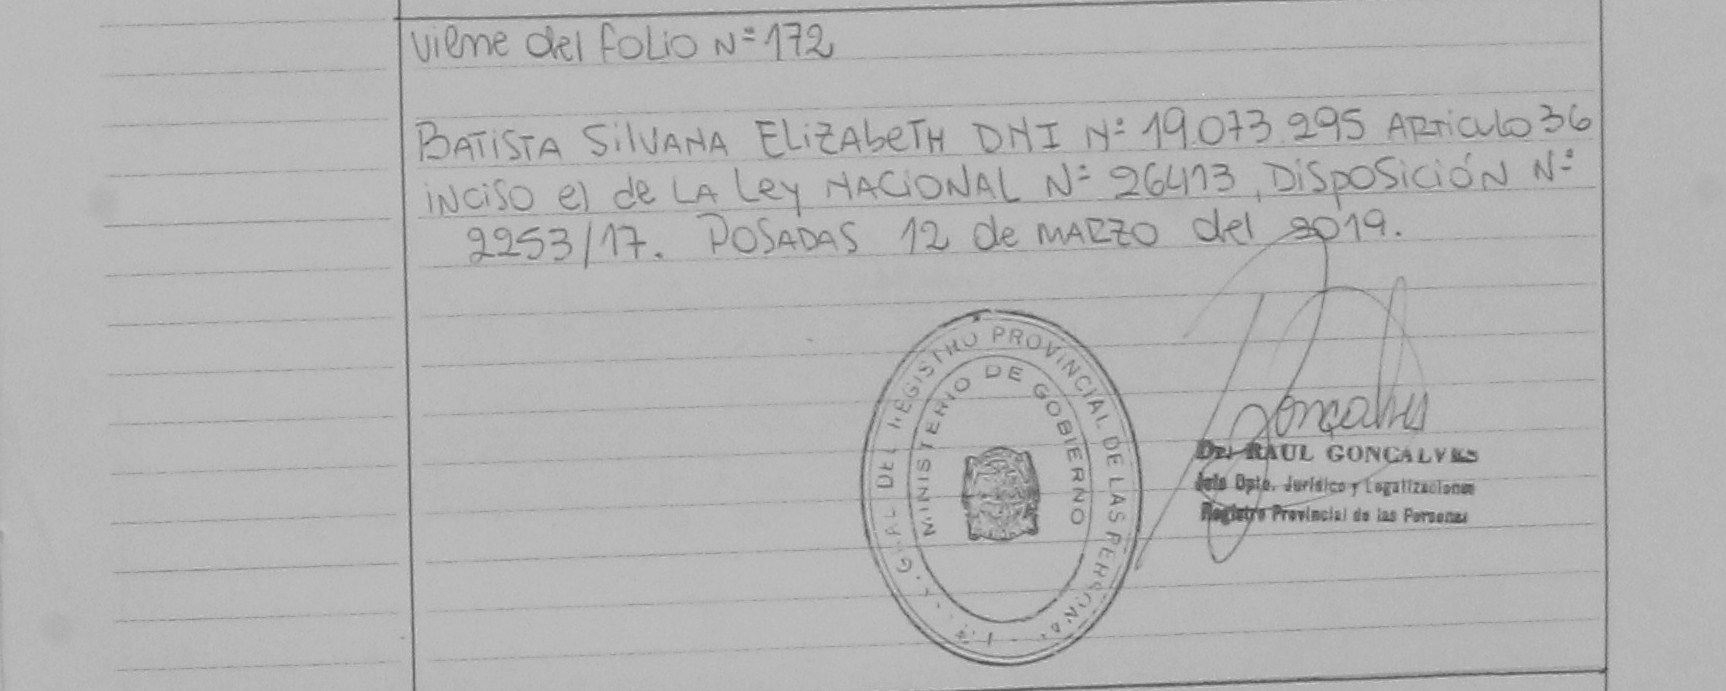 viene del folio N° 172
BATISTA SILVANA ELIZABETH DNI N° 19.073.295 ARTICULO 36
inciso e) de LA Ley NACIONAL N° 26413, DISPOSICIÓN N°
2253/17. POSADAS 12 de MARZO del 2019.
GRAL DEL REGISTRO PROVINCIAL DE LAS PERSONAS
MINISTERIO DE GOBIERNO
Goncalves
Dr. RAUL GONCALVES
Jefe Dpto. Jurídico y Legalizaciones
Registro Provincial de las Personas